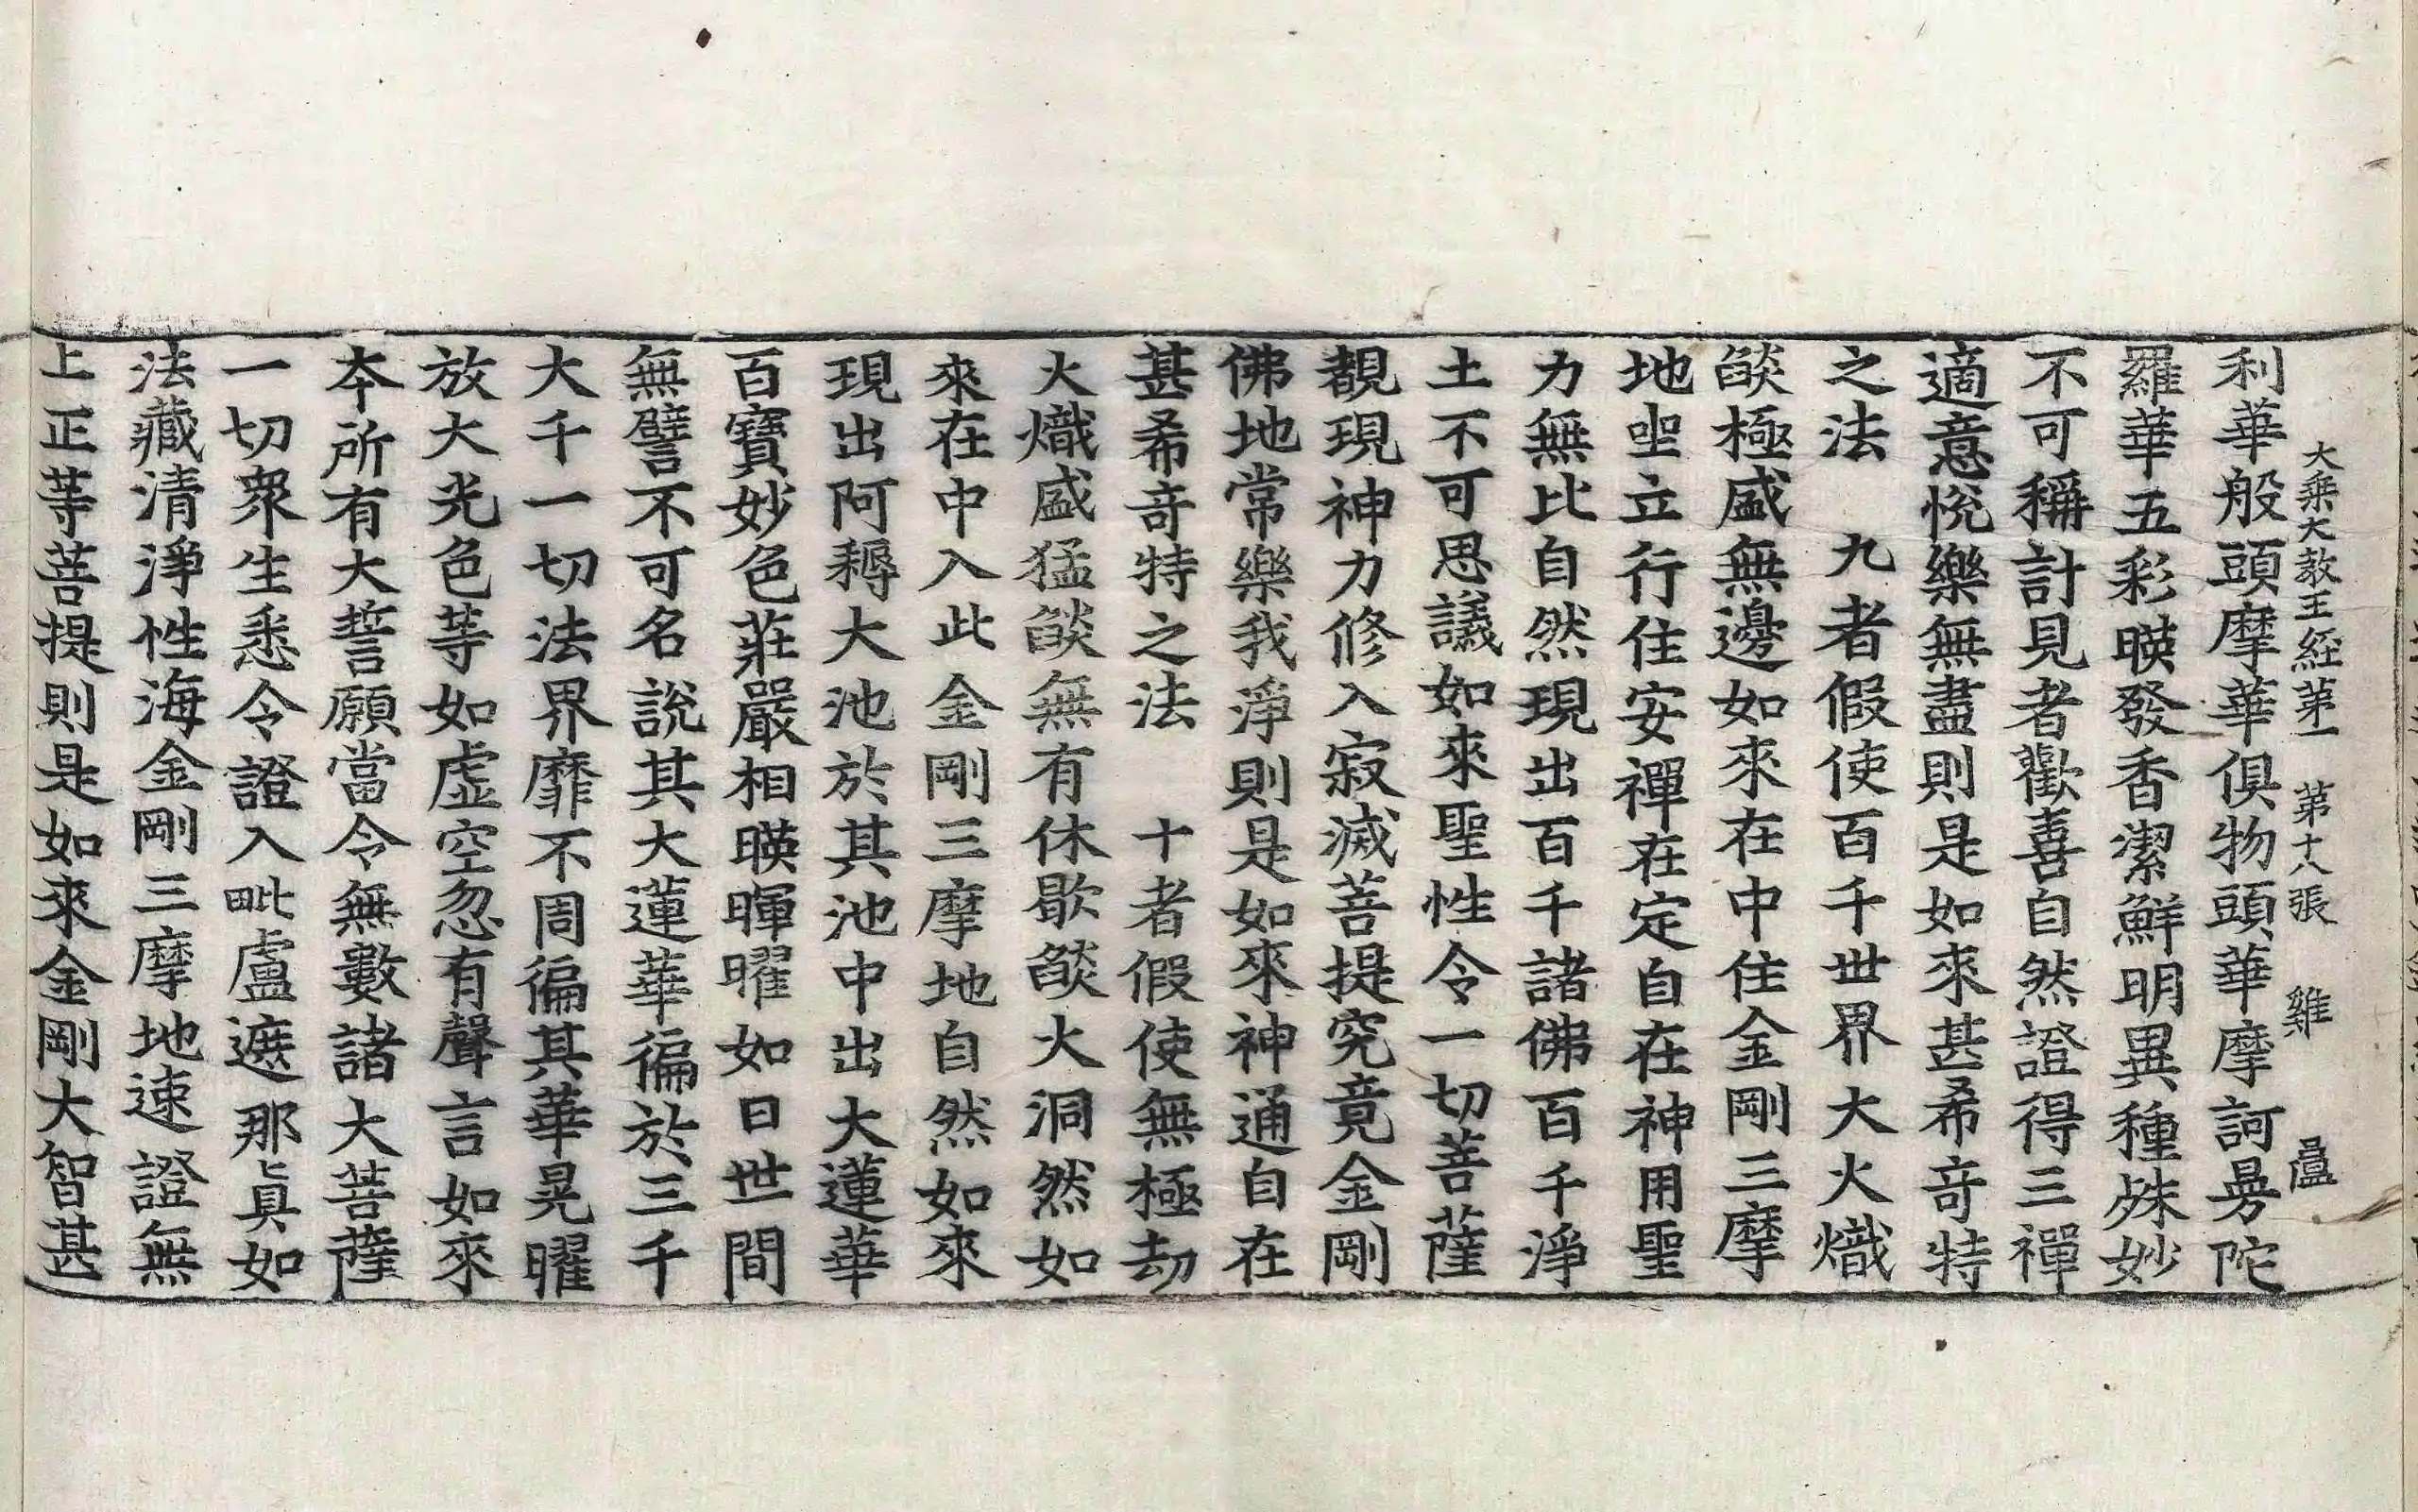 大乘大教王經第一 第十八張 雞
利華般頭摩華俱物頭華摩訶曼陀
羅華五彩暎發香潔鮮明異種殊妙
不可稱計見者歡喜自然證得三禪
適意悅樂無盡則是如來甚希奇特
之法 九者假使百千世界大火熾
燄極盛無邊如來在中住金剛三摩
地坐立行住安禪在定自在神用聖
力無比自然現出百千諸佛百千淨
土不可思議如來聖性令一切菩薩
覩現神力修入寂滅菩提究竟金剛
佛地常樂我淨則是如來神通自在
甚希奇特之法 十者假使無極劫
火熾盛猛燄無有休歇燄火洞然如
來在中入此金剛三摩地自然如來
現出阿耨大池於其池中出大蓮華
百寶妙色莊嚴相暎暉曜如日世間
無譬不可名說其大蓮華徧於三千
大千一切法界靡不周徧其華晃曜
放大光色等如虛空忽有聲言如來
本所有大誓願當令無數諸大菩薩
一切衆生悉令證入毗盧遮那眞如
法藏清淨性海金剛三摩地速證無
上正等菩提則是如來金剛大智甚